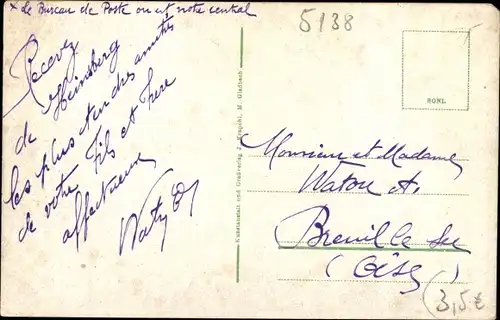 x Le Bureau de Poste ou est notre central
5138
Recevez
de Heinsberg
les plus tendres amitiés
de votre Fils et Frère
affectueux
SONL.
Kunstanstalt und Großverlag J. Krapohl, M. Gladbach
Monsieur et Madame
Watou A.
Breuil le Sec
(Oise)
3,5€